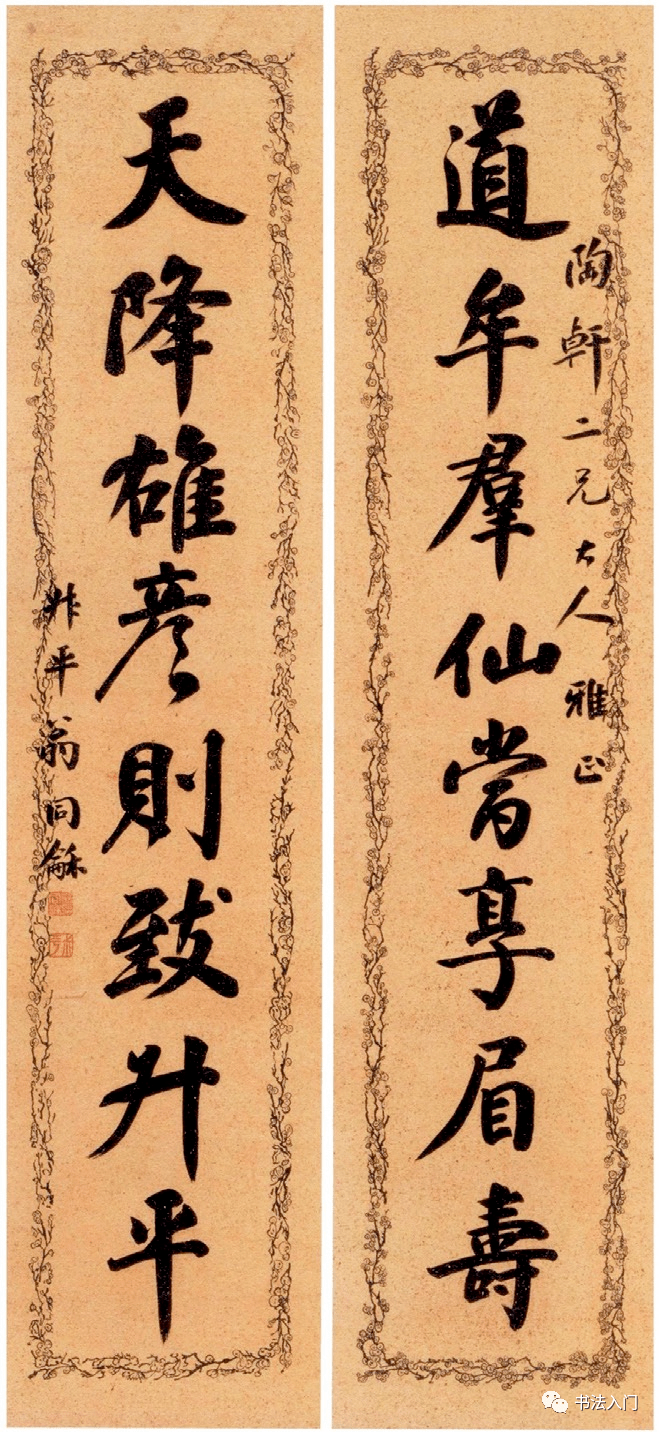 道牟羣仙當享眉壽
陶軒二兄大人雅正
天降雄彥則致升平
叔平翁同龢
书法入门